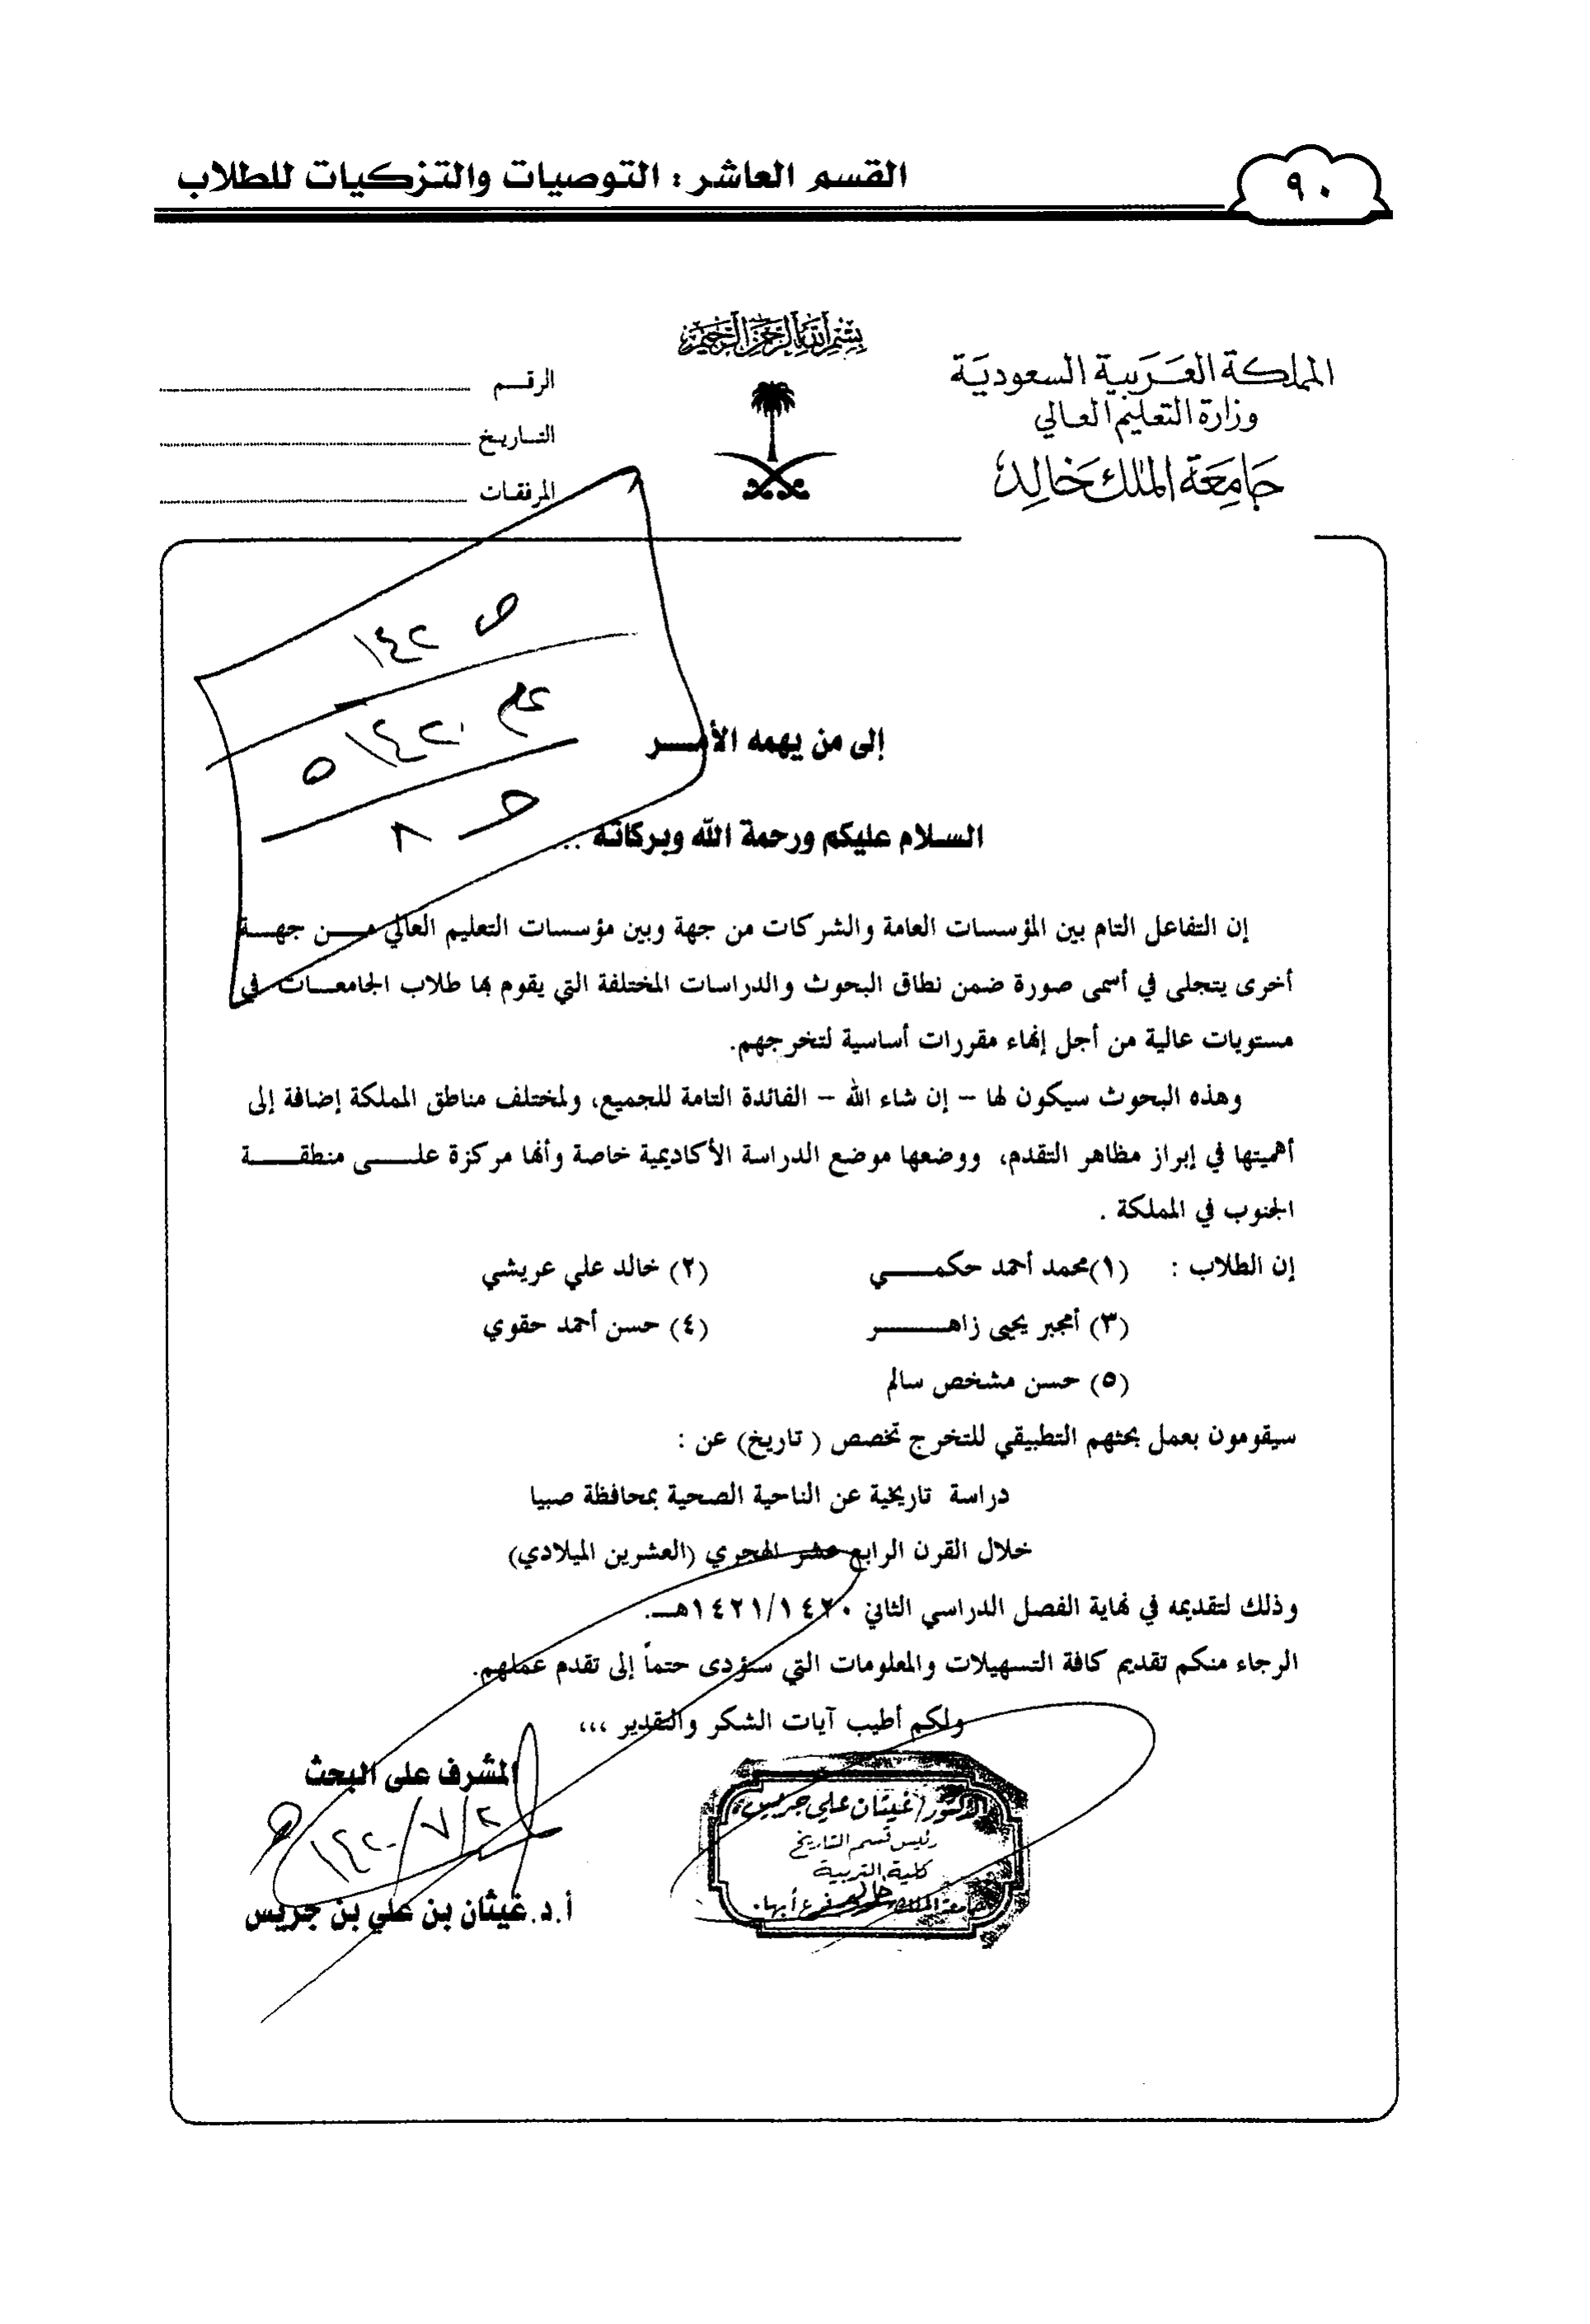 القسم العاشر : التوصيات والتزكيات للطلاب
٩٠
بسم الله الرحمن الرحيم
المملكة العربية السعودية
وزارة التعليم العالي
جامعة الملك خالد
الرقـــم
التــاريــخ
المرفقـات
ص ١٤٢
ع ١٤٢٠ ٥
٨
إلى من يهمه الأمـــر
السلام عليكم ورحمة الله وبركاته ...
إن التفاعل التام بين المؤسسات العامة والشركات من جهة وبين مؤسسات التعليم العالي مــن جهــة
أخرى يتجلى في أسمى صورة ضمن نطاق البحوث والدراسات المختلفة التي يقوم بها طلاب الجامعـــات في
مستويات عالية من أجل إنهاء مقررات أساسية لتخرجهم.
وهذه البحوث سيكون لها – إن شاء الله – الفائدة التامة للجميع، ولمختلف مناطق المملكة إضافة إلى
أهميتها في إبراز مظاهر التقدم، ووضعها موضع الدراسة الأكاديمية خاصة وأنها مركزة علـــى منطقــــة
الجنوب في المملكة .
إن الطلاب : (١)محمد أحمد حكمـــــي (٢) خالد علي عريشي
(٣) أمجبر يحيى زاهـــــــر (٤) حسن أحمد حقوي
(٥) حسن مشخص سالم
سيقومون بعمل بحثهم التطبيقي للتخرج تخصص ( تاريخ) عن :
دراسة تاريخية عن الناحية الصحية بمحافظة صبيا
خلال القرن الرابع عشر الهجري (العشرين الميلادي)
وذلك لتقديمه في نهاية الفصل الدراسي الثاني ١٤٢١/١٤٢٠هـــ.
الرجاء منكم تقديم كافة التسهيلات والمعلومات التي ستؤدى حتماً إلى تقدم عملهم.
ولكم أطيب آيات الشكر والتقدير ،،،
المشرف على البحث
١٤٢٠/٧/٢ هـ
أ.د.غيثان بن علي بن جريس
الدكتور/غيثان علي جريس
رئيس قسم التاريخ
كلية التربية
جامعة الملك خالد فرع أبها.